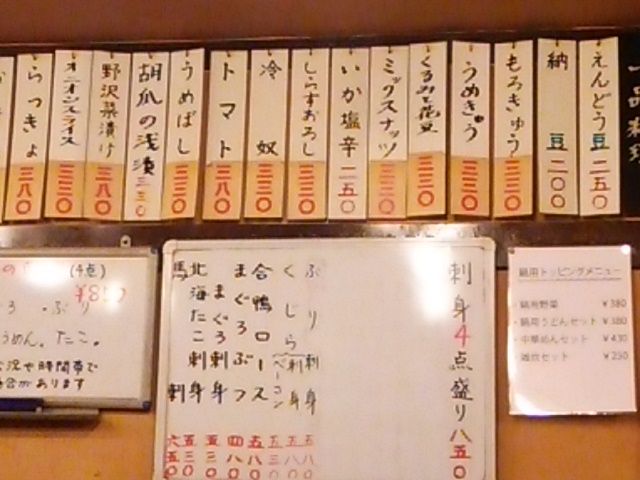 一品料理
えんどう豆 二五〇
納豆 二〇〇
もろきゅう 三三〇
うめきゅう 三三〇
くるみと花豆 三三〇
ミックスナッツ 三三〇
いか塩辛 二五〇
しらすおろし 三三〇
冷奴 三三〇
トマト 三八〇
うめぼし 三三〇
胡瓜の浅漬 三三〇
野沢菜漬け 三八〇
オニオンスライス 三三〇
らっきょ 三八〇
刺身4点盛り 八五〇
ぶり刺身 五八〇
くじら刺身 五八〇
(ベーコン) 五三〇
合鴨ロース 五八〇
まぐろぶつ 四八〇
まぐろ刺身 五五〇
北海たこ刺身 五三〇
馬刺 六五〇
(4点)
¥850
・ぶり
うめん。たこ。
況や時間帯で
合があります
鍋用トッピングメニュー
・鍋用野菜 ¥380
・鍋用うどんセット ¥380
・中華めんセット ¥430
・雑炊セット ¥250